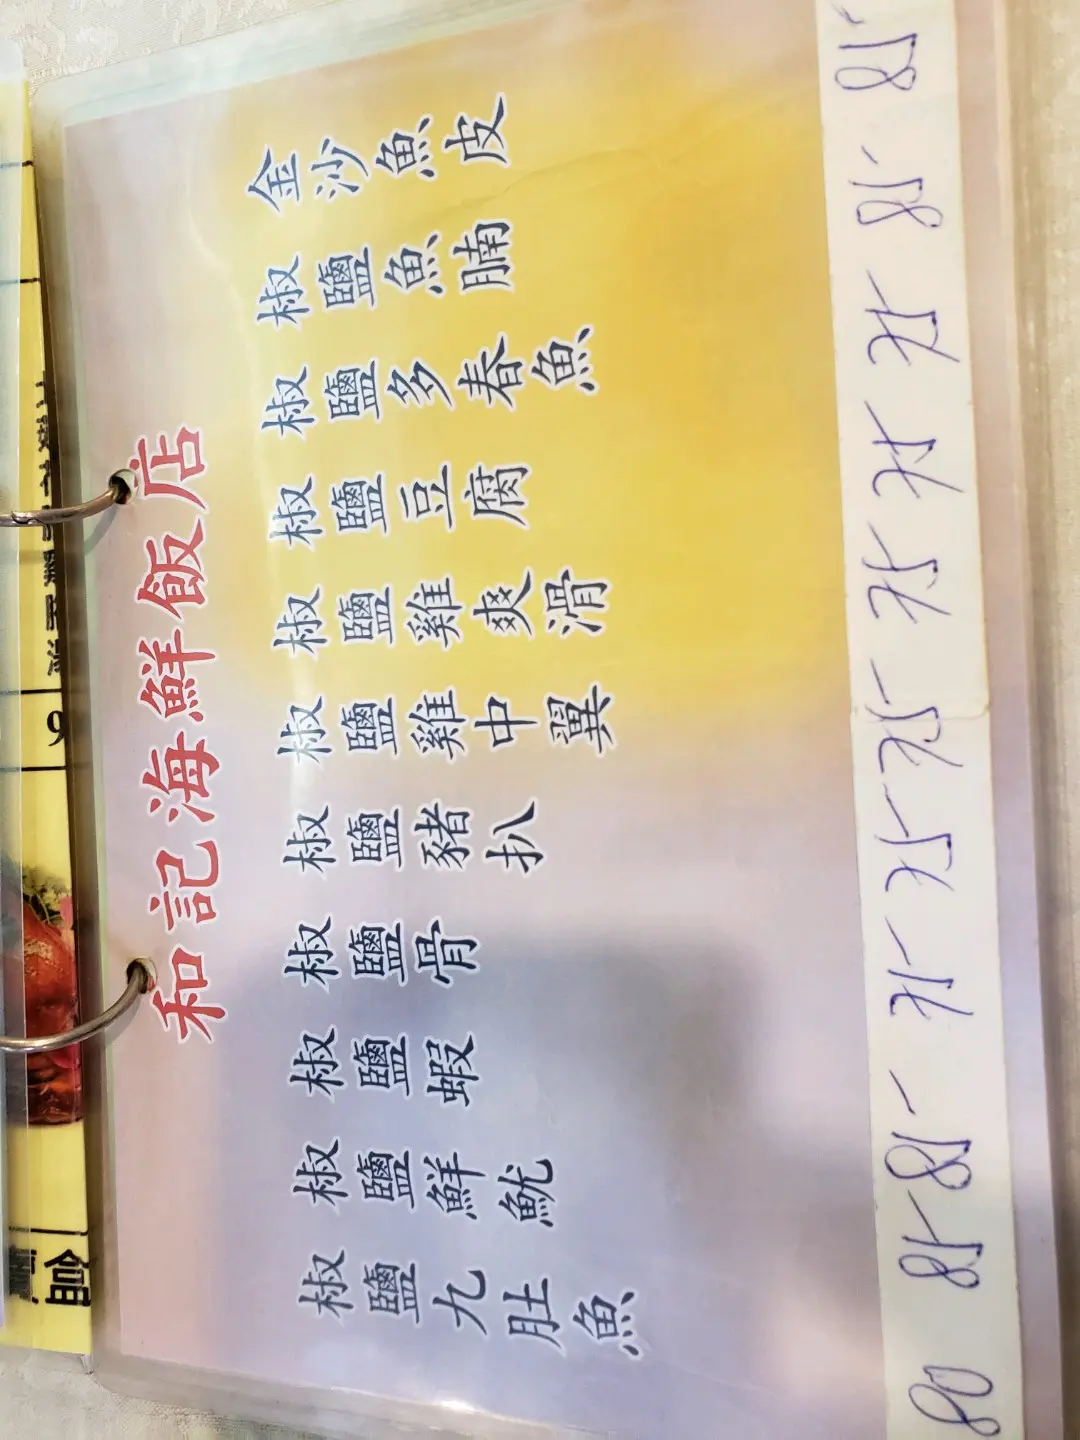 和記海鮮飯店
金沙魚皮
85-
椒鹽魚腩
85-
椒鹽多春魚
75-
椒鹽豆腐
75-
椒鹽雞爽滑
75-
椒鹽雞中翼
75-
椒鹽豬扒
75-
椒鹽骨
75-
椒鹽蝦
85-
椒鹽鮮魷
85-
椒鹽九肚魚
80
9